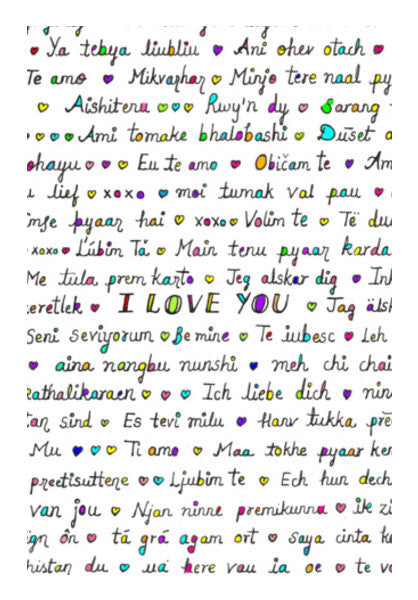 Ya tebya liubliu Ani ohev otach
Te amo Mikvarhar Minjo tere naal py
Aishiteru Rwy'n dy Sarang
Ami tomake bhalobashi Düset
ohayu Eu te amo Običam te Am
lief xoxo moi tumak val pau
pyaar hai xoxo Volim te Të du
xoxo L'úbim Tă Main tenu pyaar karda
Me tula prem karto Jeg alskar dig Inh
eretlek I LOVE YOU Jag älsk
Seni seviyorum Be mine Te iubesc Leh
aina nangbu nunshi meh chi chai
kathalikaraen Ich liebe dich nin
tan sind Es tevi milu Hanv tukka pre
Mu Ti amo Maa tokhe pyaar ker
preetisuttene Ljubim te Ech hun dech
van jou Njan ninne premikunna ik zi
ign ôn tá grá agam ort saya cinta k
histan du uá here vau ia oe te v